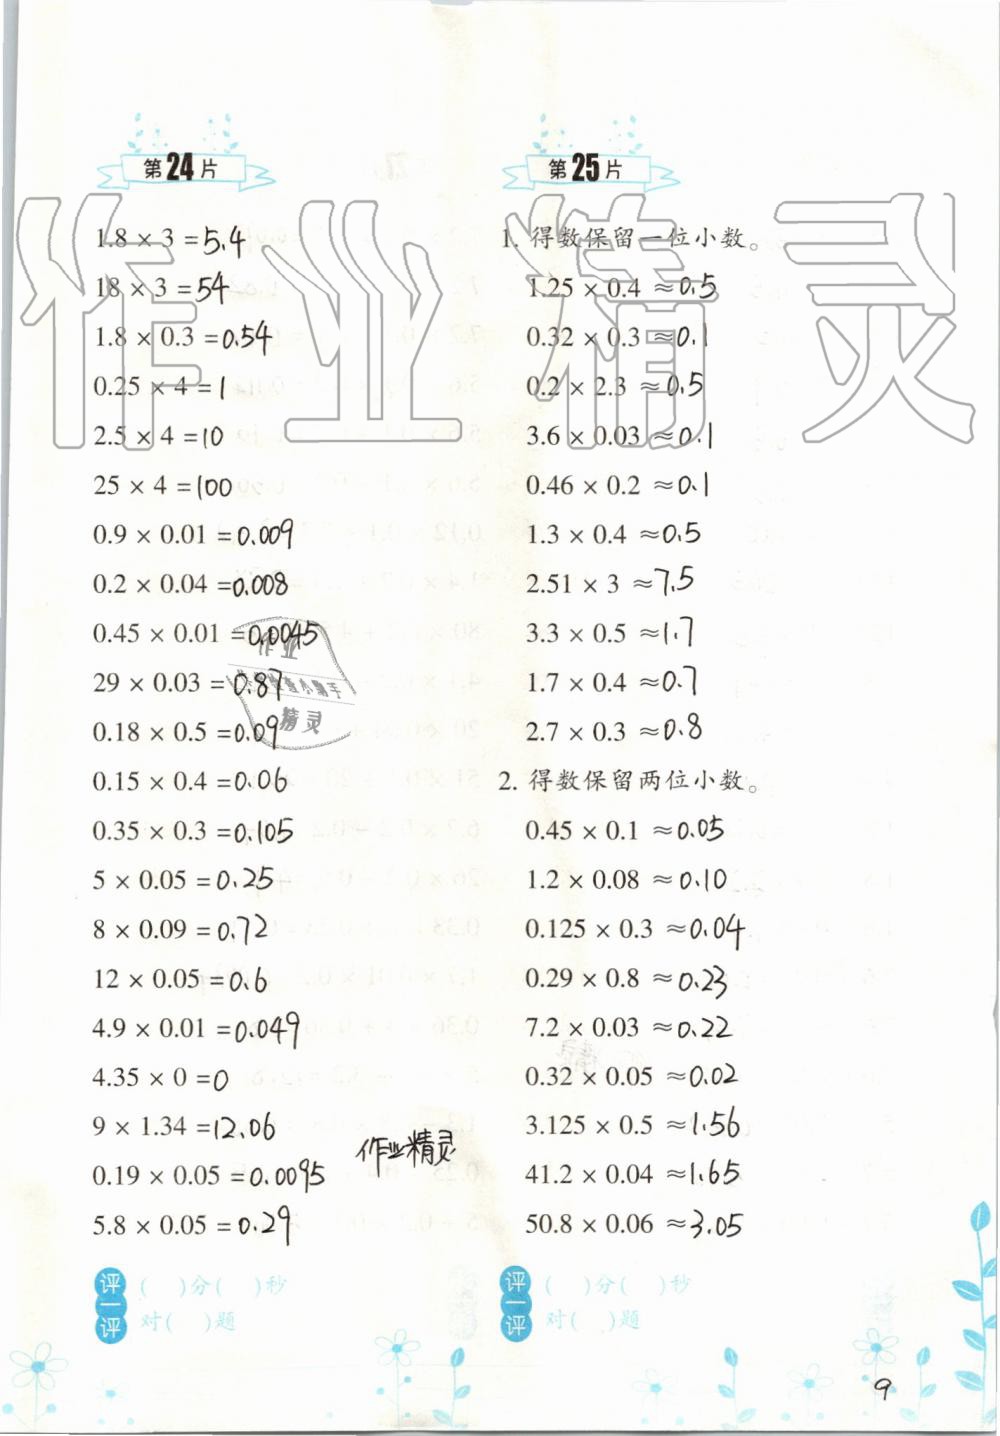 第24片
1.8 × 3 = 5.4
18 × 3 = 54
1.8 × 0.3 = 0.54
0.25 × 4 = 1
2.5 × 4 = 10
25 × 4 = 100
0.9 × 0.01 = 0.009
0.2 × 0.04 = 0.008
0.45 × 0.01 = 0.0045
29 × 0.03 = 0.87
0.18 × 0.5 = 0.09
0.15 × 0.4 = 0.06
0.35 × 0.3 = 0.105
5 × 0.05 = 0.25
8 × 0.09 = 0.72
12 × 0.05 = 0.6
4.9 × 0.01 = 0.049
4.35 × 0 = 0
9 × 1.34 = 12.06
0.19 × 0.05 = 0.0095
5.8 × 0.05 = 0.29
作业精灵
评一评
( )分( )秒
对( )题
第25片
1. 得数保留一位小数。
1.25 × 0.4 ≈ 0.5
0.32 × 0.3 ≈ 0.1
0.2 × 2.3 ≈ 0.5
3.6 × 0.03 ≈ 0.1
0.46 × 0.2 ≈ 0.1
1.3 × 0.4 ≈ 0.5
2.51 × 3 ≈ 7.5
3.3 × 0.5 ≈ 1.7
1.7 × 0.4 ≈ 0.7
2.7 × 0.3 ≈ 0.8
2. 得数保留两位小数。
0.45 × 0.1 ≈ 0.05
1.2 × 0.08 ≈ 0.10
0.125 × 0.3 ≈ 0.04
0.29 × 0.8 ≈ 0.23
7.2 × 0.03 ≈ 0.22
0.32 × 0.05 ≈ 0.02
3.125 × 0.5 ≈ 1.56
41.2 × 0.04 ≈ 1.65
50.8 × 0.06 ≈ 3.05
评一评
( )分( )秒
对( )题
9
作业精灵
作业
精灵